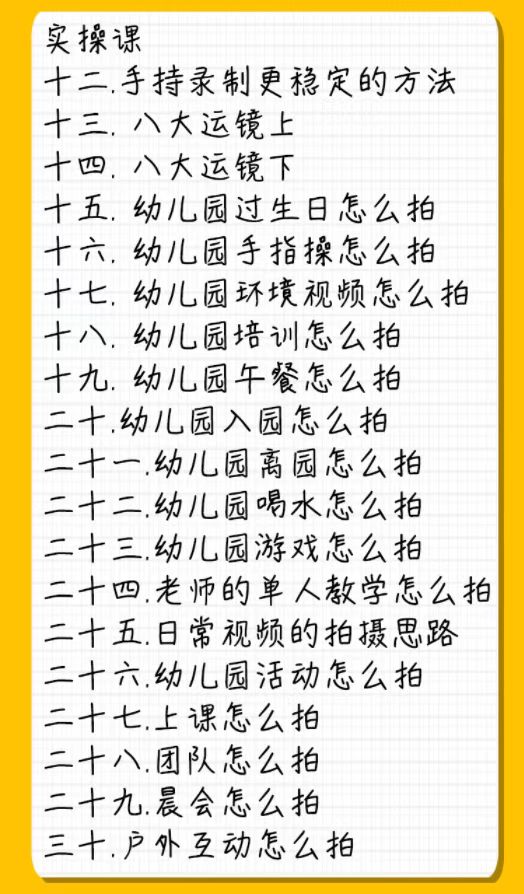 实操课
十二.手持录制更稳定的方法
十三. 八大运镜上
十四. 八大运镜下
十五. 幼儿园过生日怎么拍
十六. 幼儿园手指操怎么拍
十七. 幼儿园环境视频怎么拍
十八. 幼儿园培训怎么拍
十九. 幼儿园午餐怎么拍
二十.幼儿园入园怎么拍
二十一.幼儿园离园怎么拍
二十二.幼儿园喝水怎么拍
二十三.幼儿园游戏怎么拍
二十四.老师的单人教学怎么拍
二十五.日常视频的拍摄思路
二十六.幼儿园活动怎么拍
二十七.上课怎么拍
二十八.团队怎么拍
二十九.晨会怎么拍
三十.户外互动怎么拍